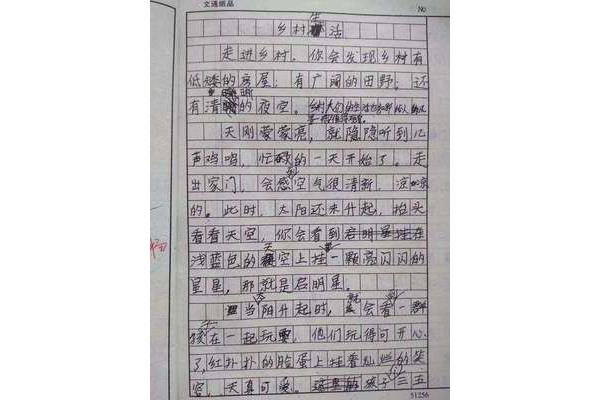 文通纸品
NO
乡村生活
走进乡村,你会发现乡村有
低矮的房屋;有广阔的田野;还
有清的夜空。乡村人们的生
天刚蒙蒙亮,就隐隐听到几
声鸡鸣,忙碌的一天开始了。走
出家门,会感到空气很清新,凉凉
的。此时,太阳还未升起,抬头
看看天空,你会看到启明星挂在
浅蓝色的天空上挂一颗亮闪闪的
星星,那就是启明星。
当阳升起时,就会看一群
孩在一起玩,他们玩得可开心
了,红扑扑的脸蛋上挂着灿烂的笑
容,天真可爱。孩子们三五
51256